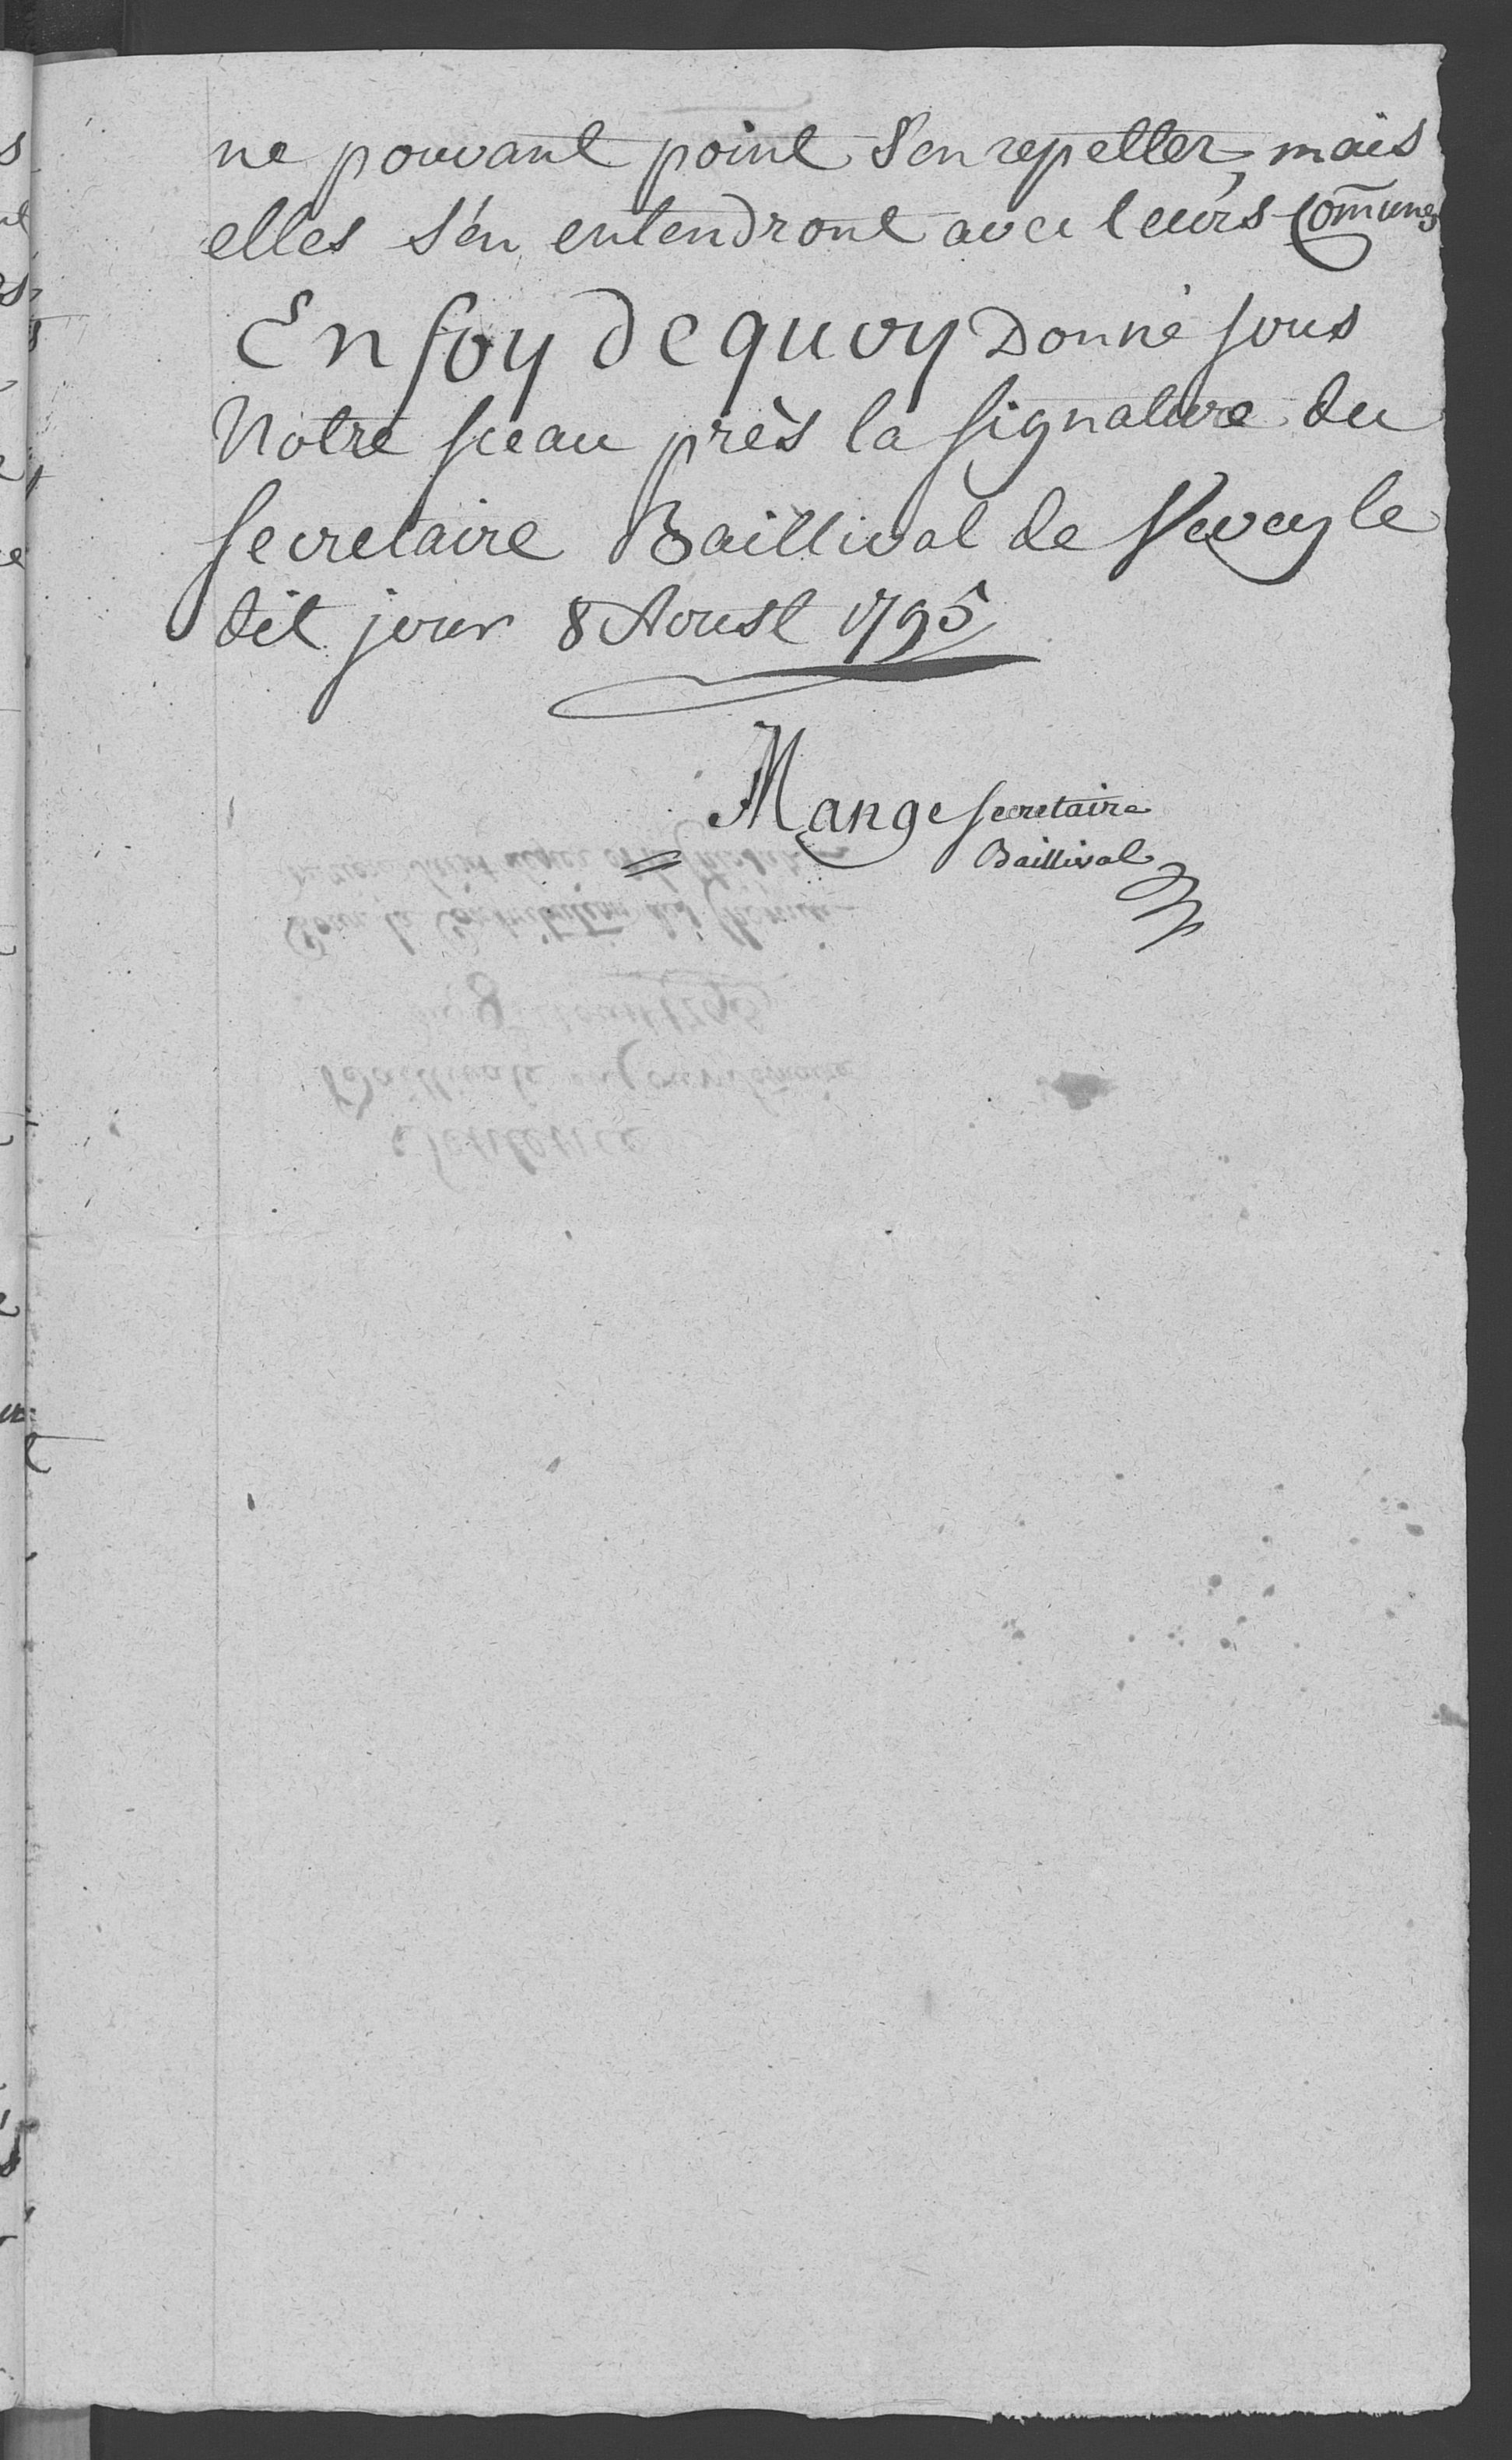 ne pouvant point s'en repetter, mais
elles s'én entendront avec leurs Com̄unes
En foy de quoy Donné sous
Notre sceau près la signature du
secretaire Baillival de Vevey le
dit jour 8 Aoust 1795
Mange secretaire
Baillival